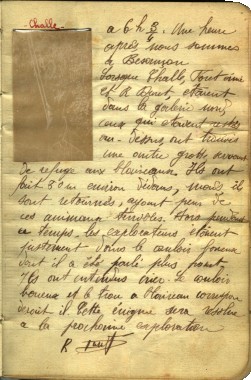 Challe
à 6 h 3. Une heure
après nous sommes
à Besançon
Lorsque Challe, Tout
et étaient
dans la galerie nord
ceux qui étaient restés
au-dessus ont trouvé
une autre grotte servant
de refuge aux blaireaux. Ils ont
fait 30 m environ dedans, mais
sont retournés, ayant peur de
ces animaux
ce temps, les explorateurs étaient
justement dans le couloir boueux
dont il a été parlé plus haut
Ils ont entendu crier. Le couloir
boueux et le trou à blaireau
il. Cette énigme sera résolue
à la prochaine exploration
R